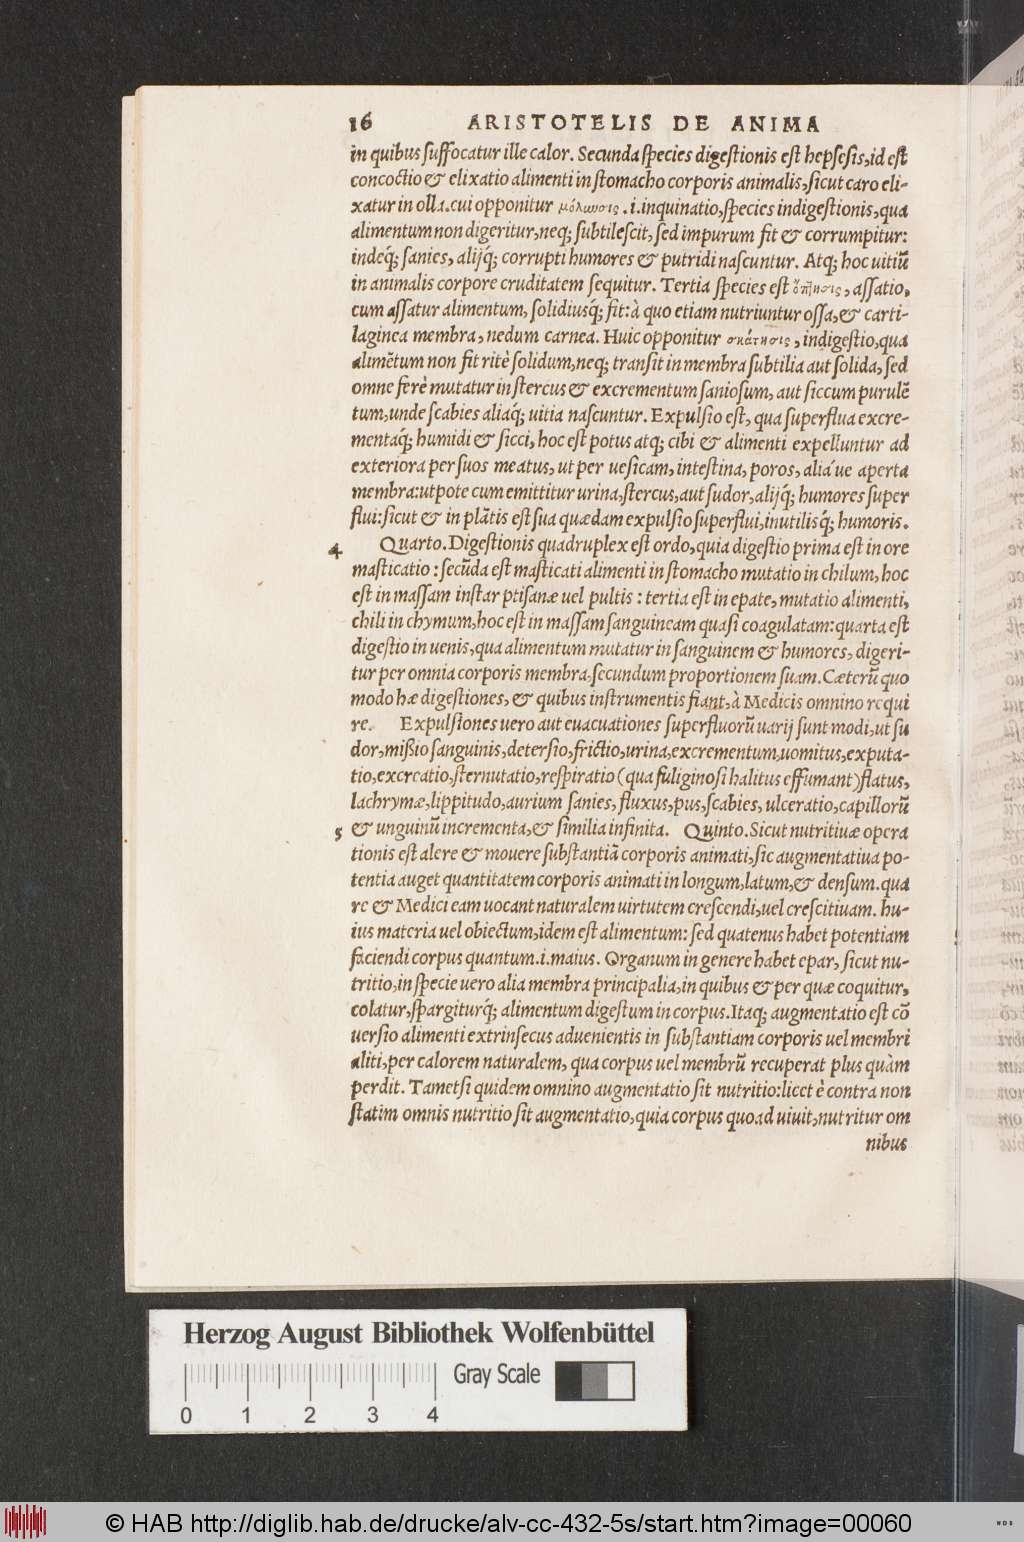 16 ARISTOTELIS DE ANIMA
in quibus suffocatur ille calor. Secunda species digestionis est hepsesis, id est
concoctio & elixatio alimenti in stomacho corporis animalis, sicut caro eli-
xatur in olla. cui opponitur μόλωσις . i. inquinatio, species indigestionis, qua
alimentum non digeritur, neq; subtilescit, sed impurum fit & corrumpitur:
indeq́; sanies, alijq́; corrupti humores & putridi nascuntur. Atq; hoc uitiũ
in animalis corpore cruditatem sequitur. Tertia species est ὄπησις, assatio,
cum assatur alimentum, solidiusq́; fit: à quo etiam nutriuntur ossa, & carti-
laginea membra, nedum carnea. Huic opponitur σκάτησις, indigestio, qua
alimẽtum non fit ritè solidum, neq; transit in membra subtilia aut solida, sed
omne ferè mutatur in stercus & excrementum saniosum, aut siccum purulẽ
tum, unde scabies aliaq́; uitia nascuntur. Expulsio est, qua superflua excre-
mentaq́; humidi & sicci, hoc est potus atq; cibi & alimenti expelluntur ad
exteriora per suos meatus, ut per uesicam, intestina, poros, aliáue aperta
membra: utpote cum emittitur urina, stercus, aut sudor, alijq́; humores super
flui: sicut & in plãtis est sua quædam expulsio superflui, inutilisq́; humoris.
4 Quarto. Digestionis quadruplex est ordo, quia digestio prima est in ore
masticatio: secũda est masticati alimenti in stomacho mutatio in chilum, hoc
est in massam instar ptisanæ uel pultis: tertia est in epate, mutatio alimenti,
chili in chymum, hoc est in massam sanguineam quasi coagulatam: quarta est
digestio in uenis, qua alimentum mutatur in sanguinem & humores, digeri-
tur per omnia corporis membra, secundum proportionem suam. Cæterũ quo
modo hæ digestiones, & quibus instrumentis fiant, à Medicis omnino requi
re. Expulsiones uero aut euacuationes superfluorũ uarij sunt modi, ut su
dor, mißio sanguinis, detersio, frictio, urina, excrementum, uomitus, exputa-
tio, excreatio, sternutatio, respiratio (qua fuliginosi halitus effumant) flatus,
lachrymæ, lippitudo, aurium sanies, fluxus, pus, scabies, ulceratio, capillorũ
5 & unguinũ incrementa, & similia infinita. Quinto. Sicut nutritiuæ opera
tionis est alere & mouere substantiã corporis animati, sic augmentatiua po-
tentia auget quantitatem corporis animati in longum, latum, & densum. qua
re & Medici eam uocant naturalem uirtutem crescendi, uel crescitiuam. hu-
ius materia uel obiectum, idem est alimentum: sed quatenus habet potentiam
faciendi corpus quantum. i. maius. Organum in genere habet epar, sicut nu-
tritio, in specie uero alia membra principalia, in quibus & per quæ coquitur,
colatur, spargiturq́; alimentum digestum in corpus. Itaq; augmentatio est cõ
uersio alimenti extrinsecus aduenientis in substantiam corporis uel membri
aliti, per calorem naturalem, qua corpus uel membrũ recuperat plus quàm
perdit. Tametsi quidem omnino augmentatio sit nutritio: licet è contra non
statim omnis nutritio sit augmentatio, quia corpus quoad uiuit, nutritur om
nibus
Herzog August Bibliothek Wolfenbüttel
Gray Scale
0 1 2 3 4
© HAB http://diglib.hab.de/drucke/alv-cc-432-5s/start.htm?image=00060